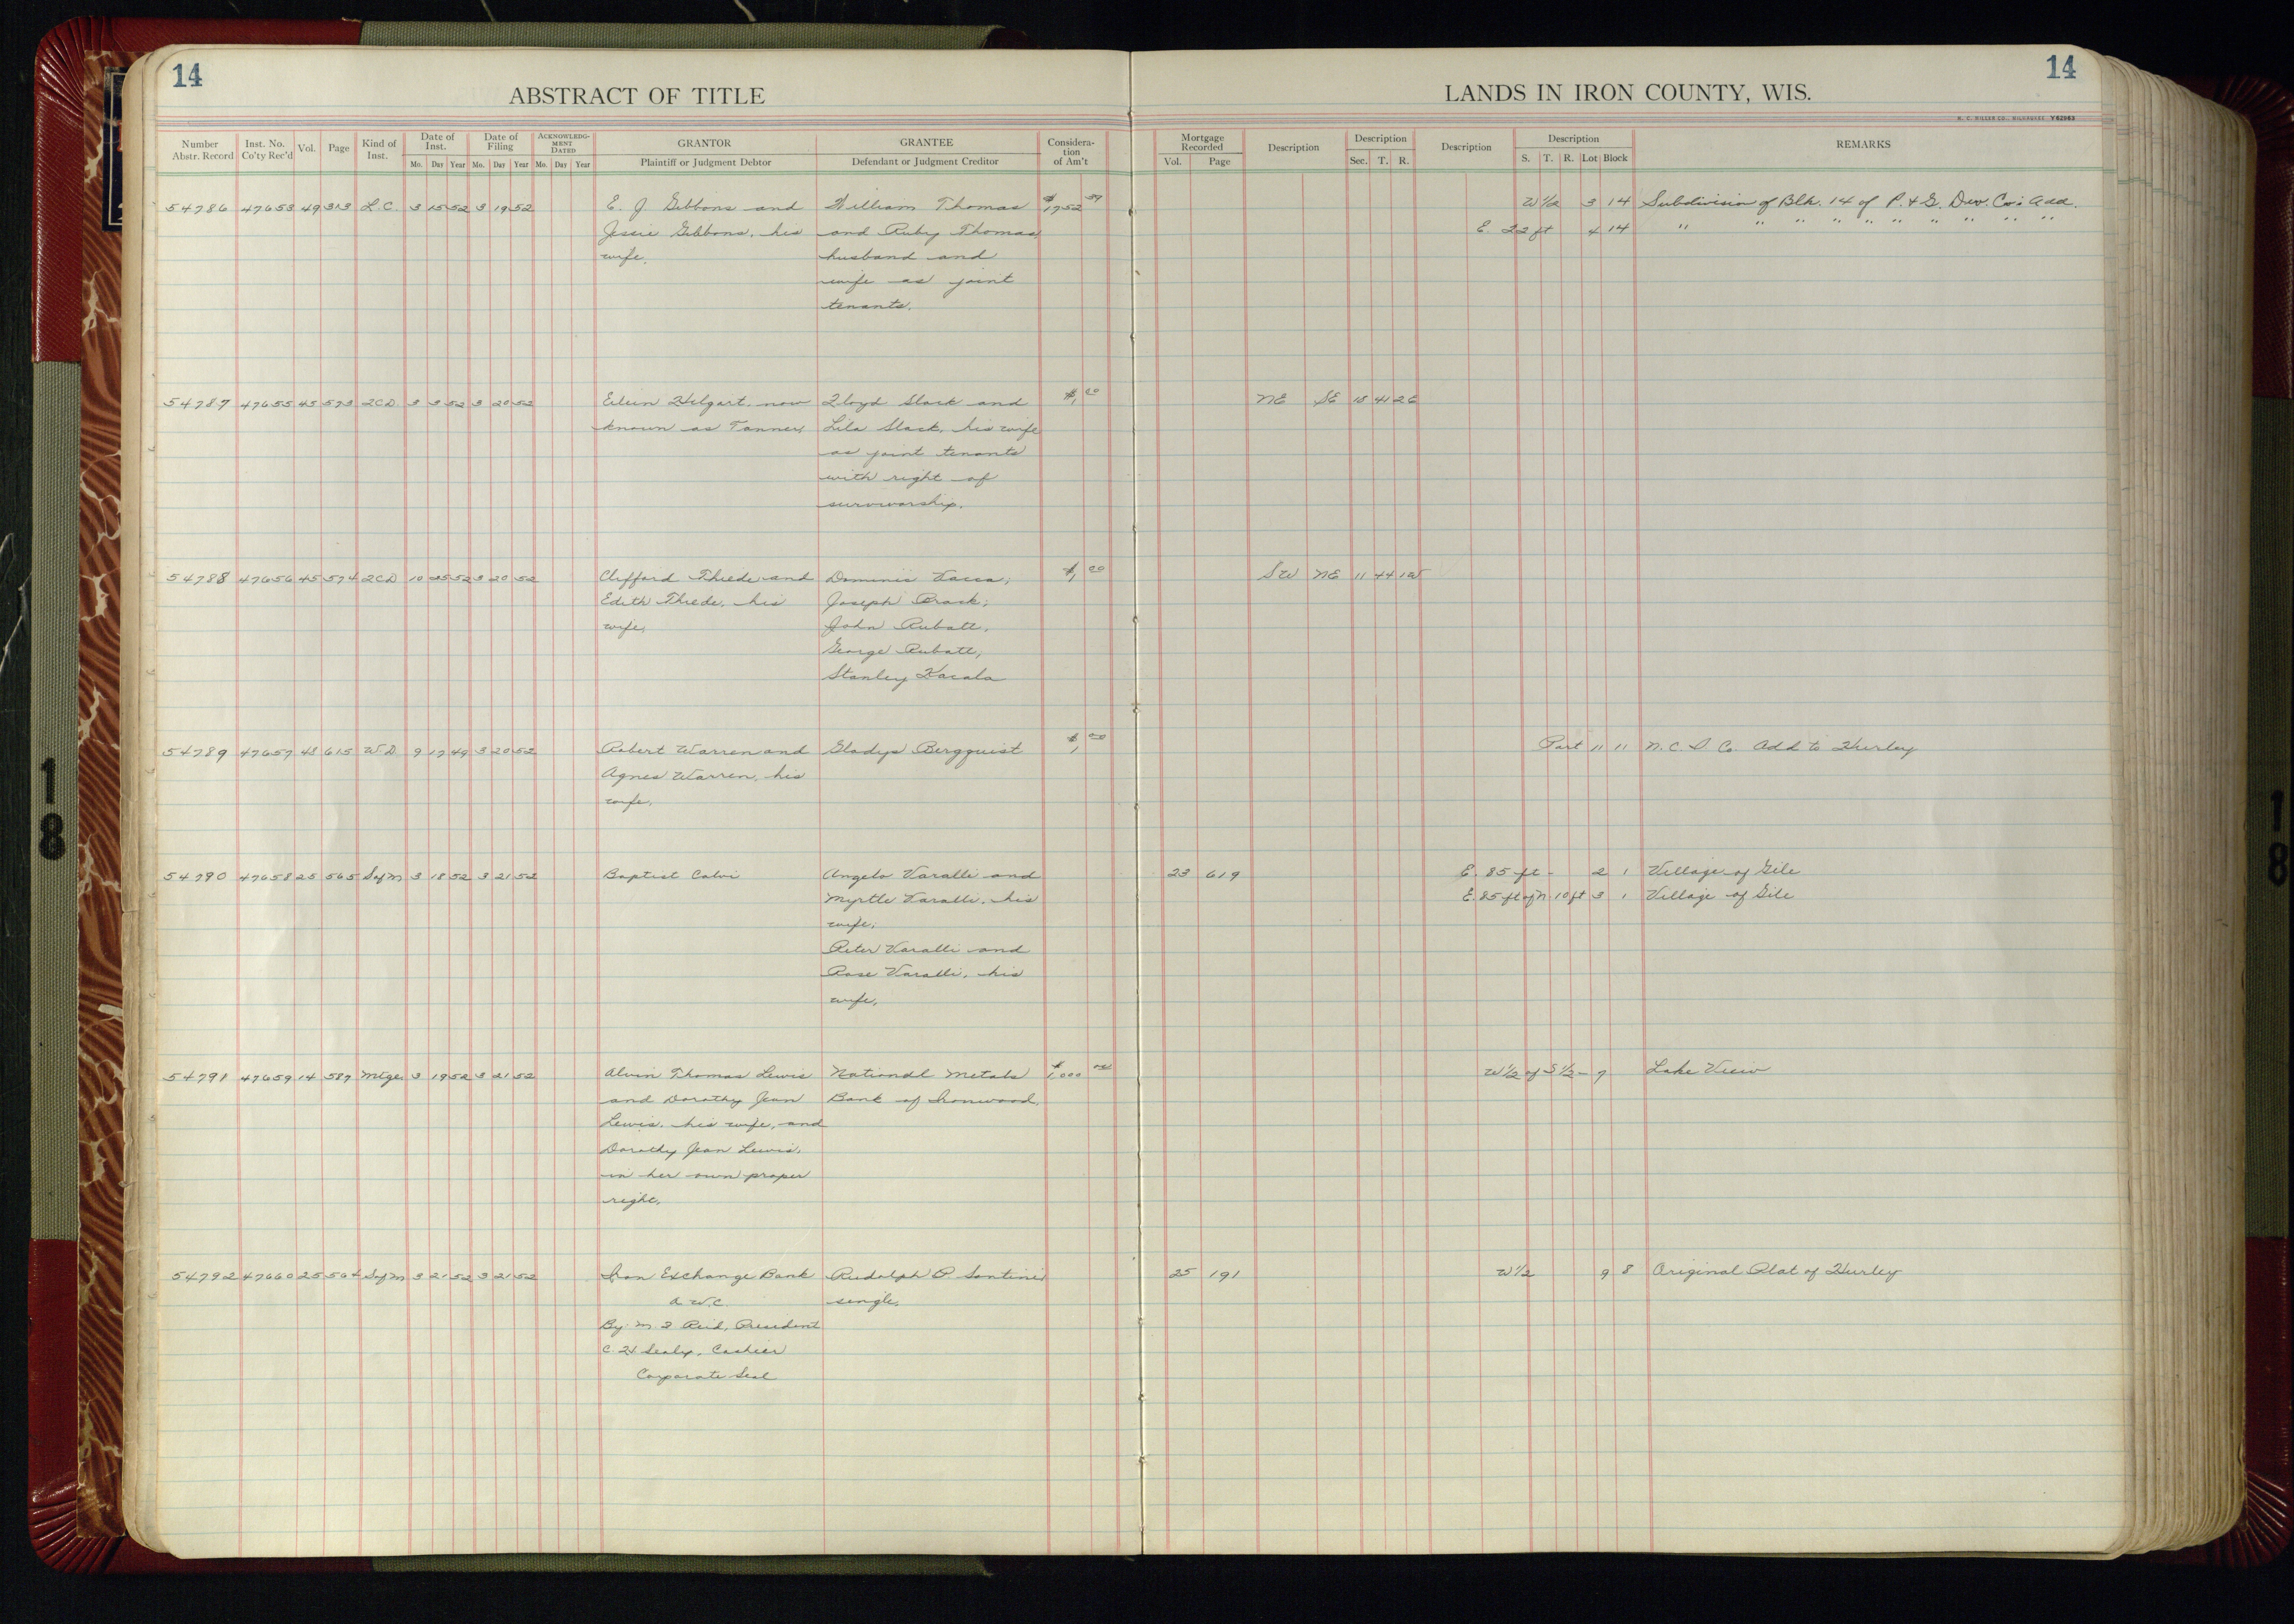 14
ABSTRACT OF TITLE
LANDS IN IRON COUNTY, WIS.
14
H. C. MILLER CO., MILWAUKEE V62963
Number Abstr. Record | Inst. No. Co'ty Rec'd | Vol. | Page | Kind of Inst. | Date of Inst. Mo. Day Year | Date of Filing Mo. Day Year | ACKNOWLEDGMENT DATED Mo. Day Year | GRANTOR Plaintiff or Judgment Debtor | GRANTEE Defendant or Judgment Creditor | Consideration of Am't | Mortgage Recorded Vol. Page | Description | Description Sec. T. R. | Description | Description S. T. R. Lot Block | REMARKS
54786 47653 49 313 L.C. 3 15 52 3 19 52 E. J. Gibbons and William Thomas $1752 39 W 1/2 3 14 Subdivision of Blk. 14 of P. & G. Dev. Co's Add.
Jessie Gibbons, his and Ruby Thomas, E. 22 ft 4 14 " " " " " " " " "
wife. husband and
wife as joint
tenants.
54787 47655 45 573 2CD 3 3 52 3 20 52 Eileen Helgart, now Lloyd Slack and $1, 00 NE SE 15 41 2E
known as Tanner, Lila Slack, his wife
as joint tenants
with right of
surviorship.
54788 47656 45 574 2CD 10 25 52 3 20 52 Clifford Thiede and Dominic Vacca; $1, 00 SW NE 11 44 1W
Edith Thiede, his Joseph Brack;
wife, John Rubatt,
George Rubatt,
Stanley Kacala
54789 47657 48 615 W.D 9 17 49 3 20 52 Robert Warren and Gladys Bergquist $1 00 Part 11 11 N. C. D. Co. Add to Hurley
Agnes Warren, his
wife.
54790 47658 25 565 Sofm 3 18 52 3 21 52 Baptist Calvi Angelo Varalli and 23 619 E. 85 ft - 2 1 Village of Gile
Myrtle Varalli, his E. 85 ft of N. 10 ft 3 1 Village of Gile
wife;
Peter Varalli and
Rose Varalli, his
wife,
54791 47659 14 587 Mtge 3 19 52 3 21 52 Alvin Thomas Lewis National Metals $1,000 00 W 1/2 of S 1/2 - 7 Lake View
and Dorothy Jean Bank of Ironwood.
Lewis, his wife, and
Dorothy Jean Lewis,
in her own proper
right.
54792 47660 25 564 Sofm 3 21 52 3 21 52 Iron Exchange Bank Rudolph P Santini 25 191 W 1/2 9 8 Original Plat of Hurley
a W.C. single.
By M. J Reid, President
C. H Sealy, Cashier
Corporate Seal
18
18